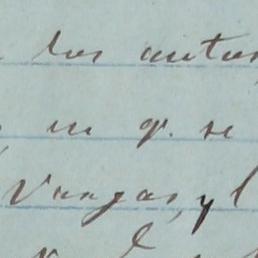 los autos
en q. se
Vargas, y l